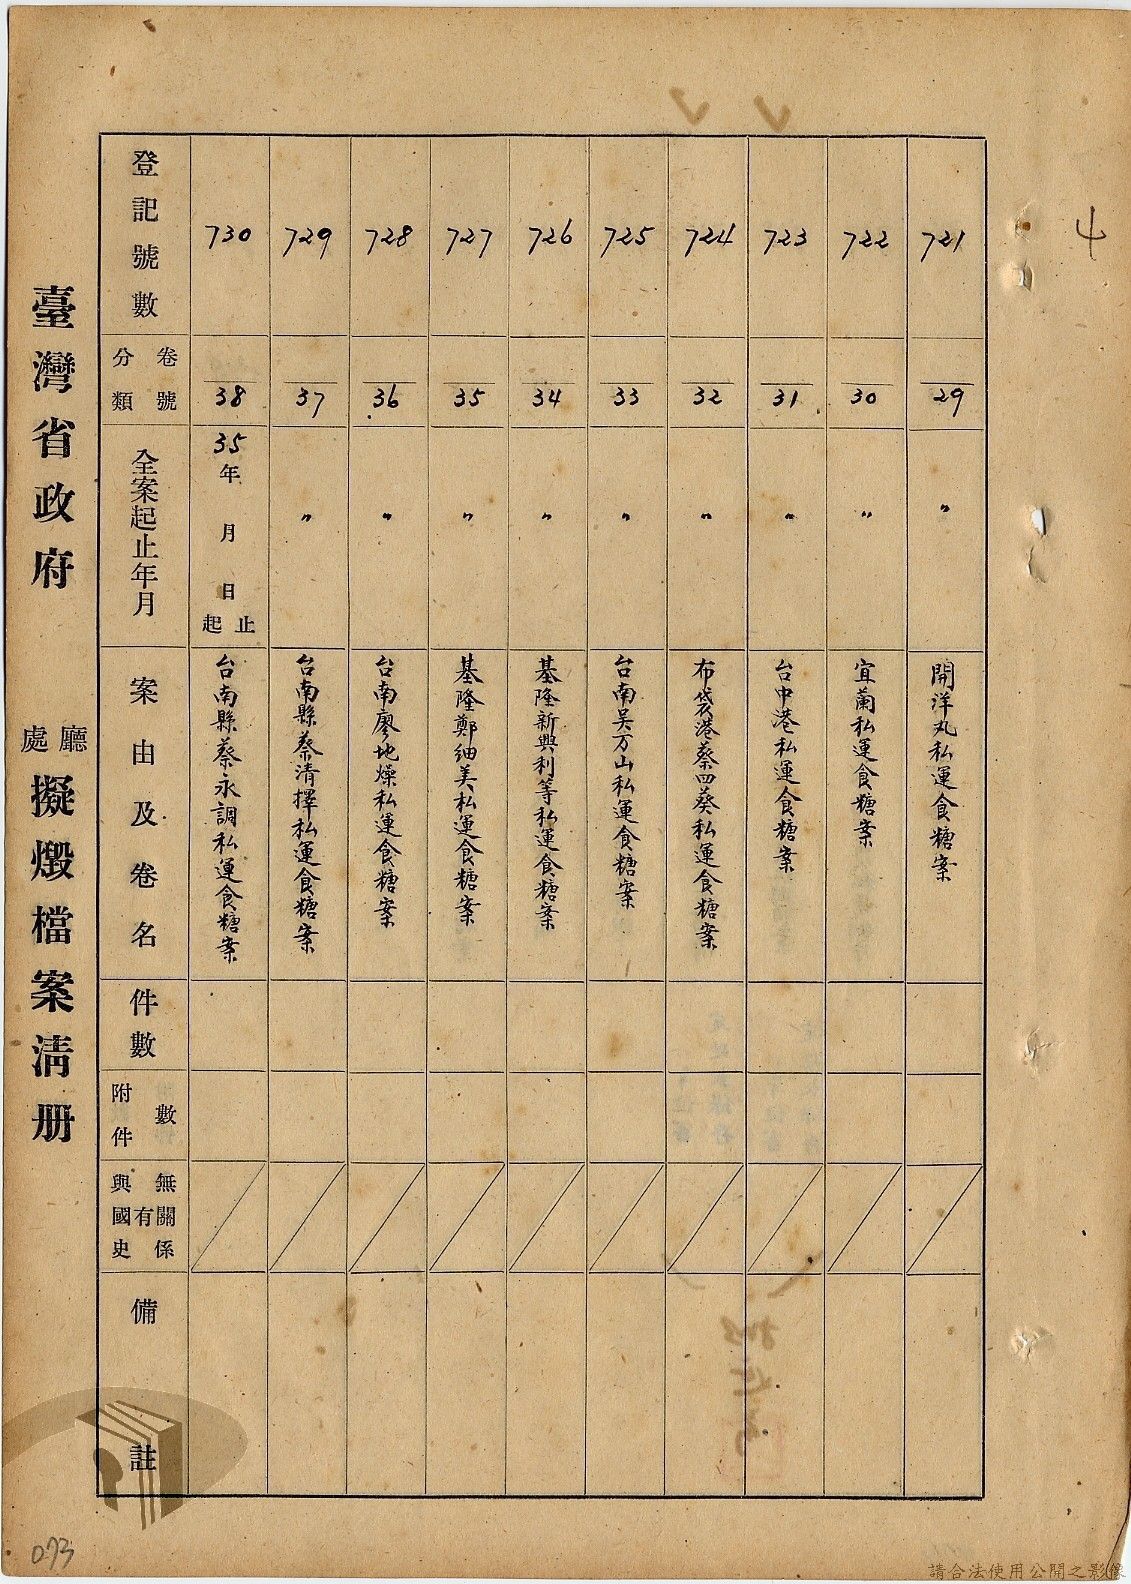 臺灣省政府 廳處 擬燬檔案清册
登記號數
卷號
分類
全案起止年月
案由及卷名
件數
附件數
與國史有無關係
備註
721
29
〃
開洋丸私運食糖案
722
30
〃
宜蘭私運食糖案
723
31
〃
台中港私運食糖案
724
32
〃
布袋港蔡四葵私運食糖案
725
33
〃
台南吴万山私運食糖案
726
34
〃
基隆新興利等私運食糖案
727
35
〃
基隆鄭細美私運食糖案
728
36
〃
台南廖地燥私運食糖案
729
37
〃
台南縣蔡清擇私運食糖案
730
38
35年 月 日起止
台南縣蔡永調私運食糖案
073
請合法使用公開之影像